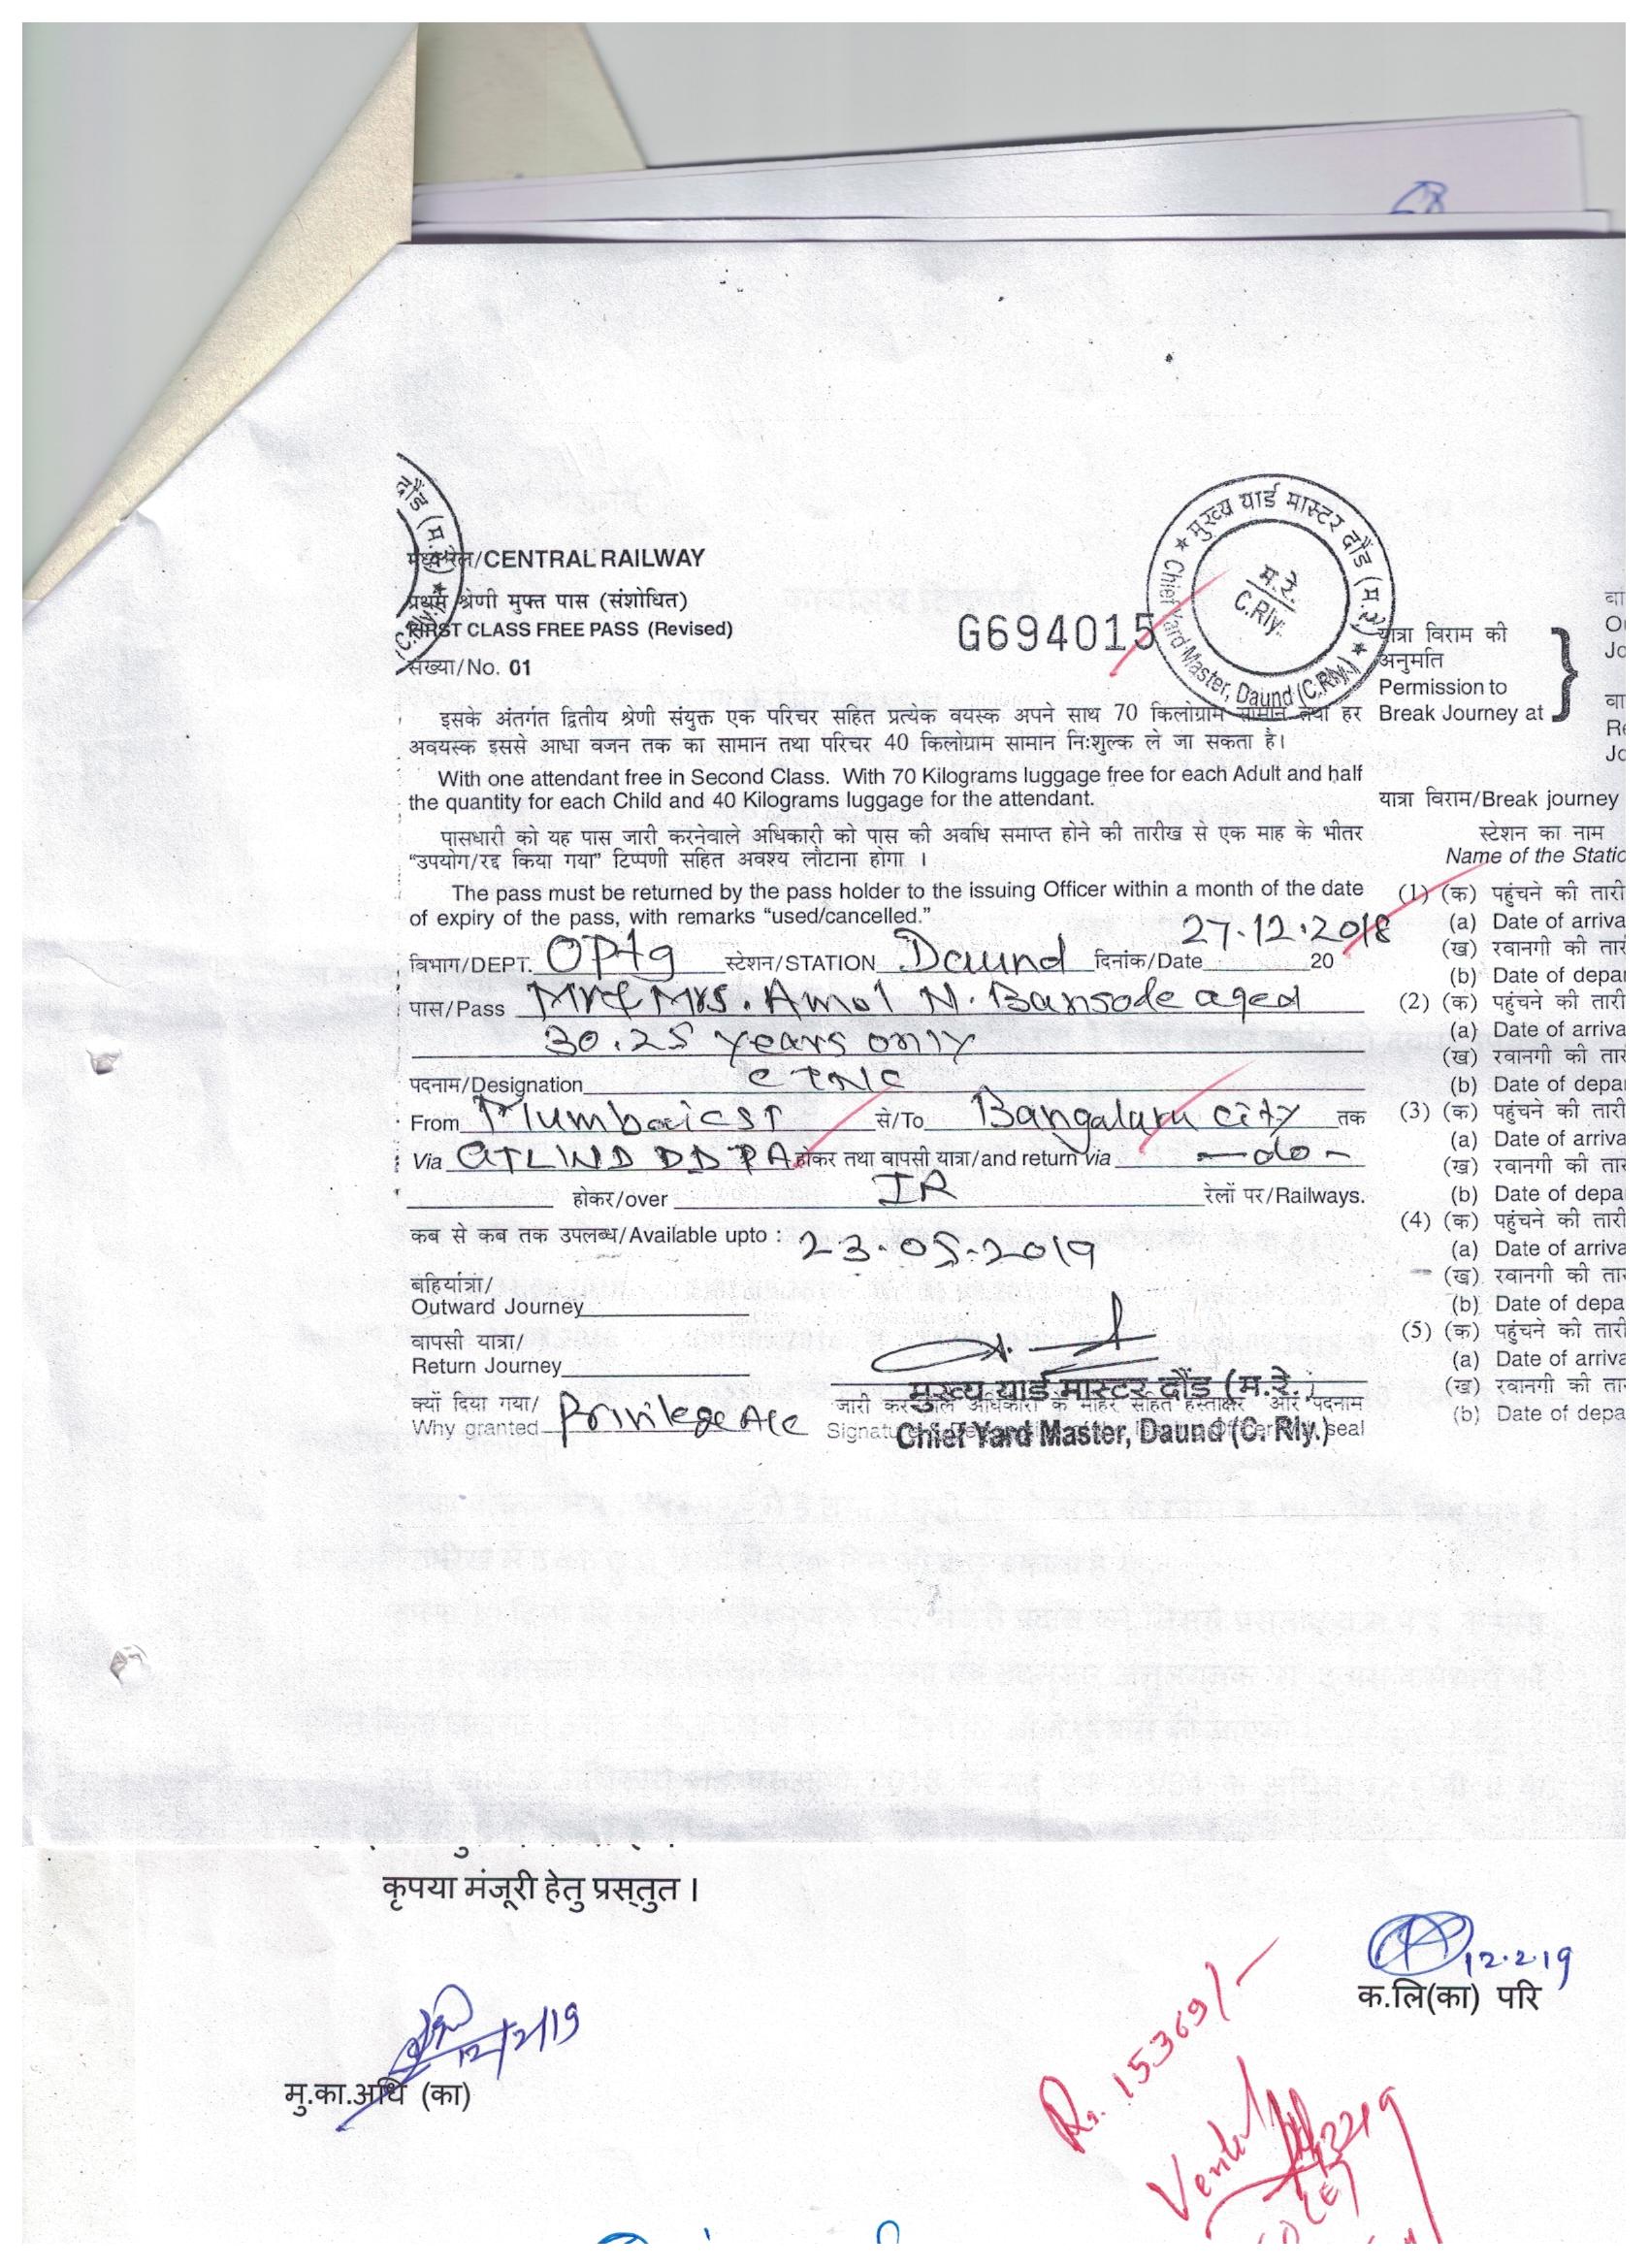 मध्य रेल/CENTRAL RAILWAY
प्रथम श्रेणी मुफ्त पास (संशोधित)
FIRST CLASS FREE PASS (Revised)
संख्या/No. 01
G694015
★ मुख्य यार्ड मास्टर दौंड (म.रे.) ★
Chief Yard Master, Daund (C.Rly.)
म.रे.
C.Rly.
दौंड (म.रे.) ★
यात्रा विराम की
अनुमति
Permission to
Break Journey at
इसके अंतर्गत द्वितीय श्रेणी संयुक्त एक परिचर सहित प्रत्येक वयस्क अपने साथ 70 किलोग्राम सामान तथा हर
अवयस्क इससे आधा वजन तक का सामान तथा परिचर 40 किलोग्राम सामान निःशुल्क ले जा सकता है।
With one attendant free in Second Class. With 70 Kilograms luggage free for each Adult and half
the quantity for each Child and 40 Kilograms luggage for the attendant.
पासधारी को यह पास जारी करनेवाले अधिकारी को पास की अवधि समाप्त होने की तारीख से एक माह के भीतर
“उपयोग/रद्द किया गया” टिप्पणी सहित अवश्य लौटाना होगा ।
The pass must be returned by the pass holder to the issuing Officer within a month of the date
of expiry of the pass, with remarks “used/cancelled.”
विभाग/DEPT. OPtg स्टेशन/STATION Daund दिनांक/Date 27.12.2018 20
पास/Pass Mr & Mrs. Amol N. Bansode aged
30.25 years only
पदनाम/Designation CTNC
From Mumbai CST से/To Bangaluru city तक
Via GTL WD DD PA होकर तथा वापसी यात्रा/and return via —do—
होकर/over IR रेलों पर/Railways.
कब से कब तक उपलब्ध/Available upto : 23.05.2019
बहिर्यात्रा/
Outward Journey
वापसी यात्रा/
Return Journey
क्यों दिया गया/
Why granted Privilege A/c
जारी करने वाले अधिकारी के मोहर सहित हस्ताक्षर और पदनाम
seal
मुख्य यार्ड मास्टर दौंड (म.रे.)
Chief Yard Master, Daund (C. Rly.)
यात्रा विराम/Break journey
स्टेशन का नाम
Name of the Static
(1) (क) पहुंचने की तारी
(a) Date of arriva
(ख) रवानगी की तार
(b) Date of depa
(2) (क) पहुंचने की तारी
(a) Date of arriva
(ख) रवानगी की तार
(b) Date of depa
(3) (क) पहुंचने की तारी
(a) Date of arriva
(ख) रवानगी की तार
(b) Date of depa
(4) (क) पहुंचने की तारी
(a) Date of arriva
(ख) रवानगी की तार
(b) Date of depa
(5) (क) पहुंचने की तारी
(a) Date of arriva
(ख) रवानगी की तार
(b) Date of depa
कृपया मंजूरी हेतु प्रस्तुत ।
12.2.19
क.लि(का) परि
12/2/19
मु.का.अधि (का)
Rs. 15369/-